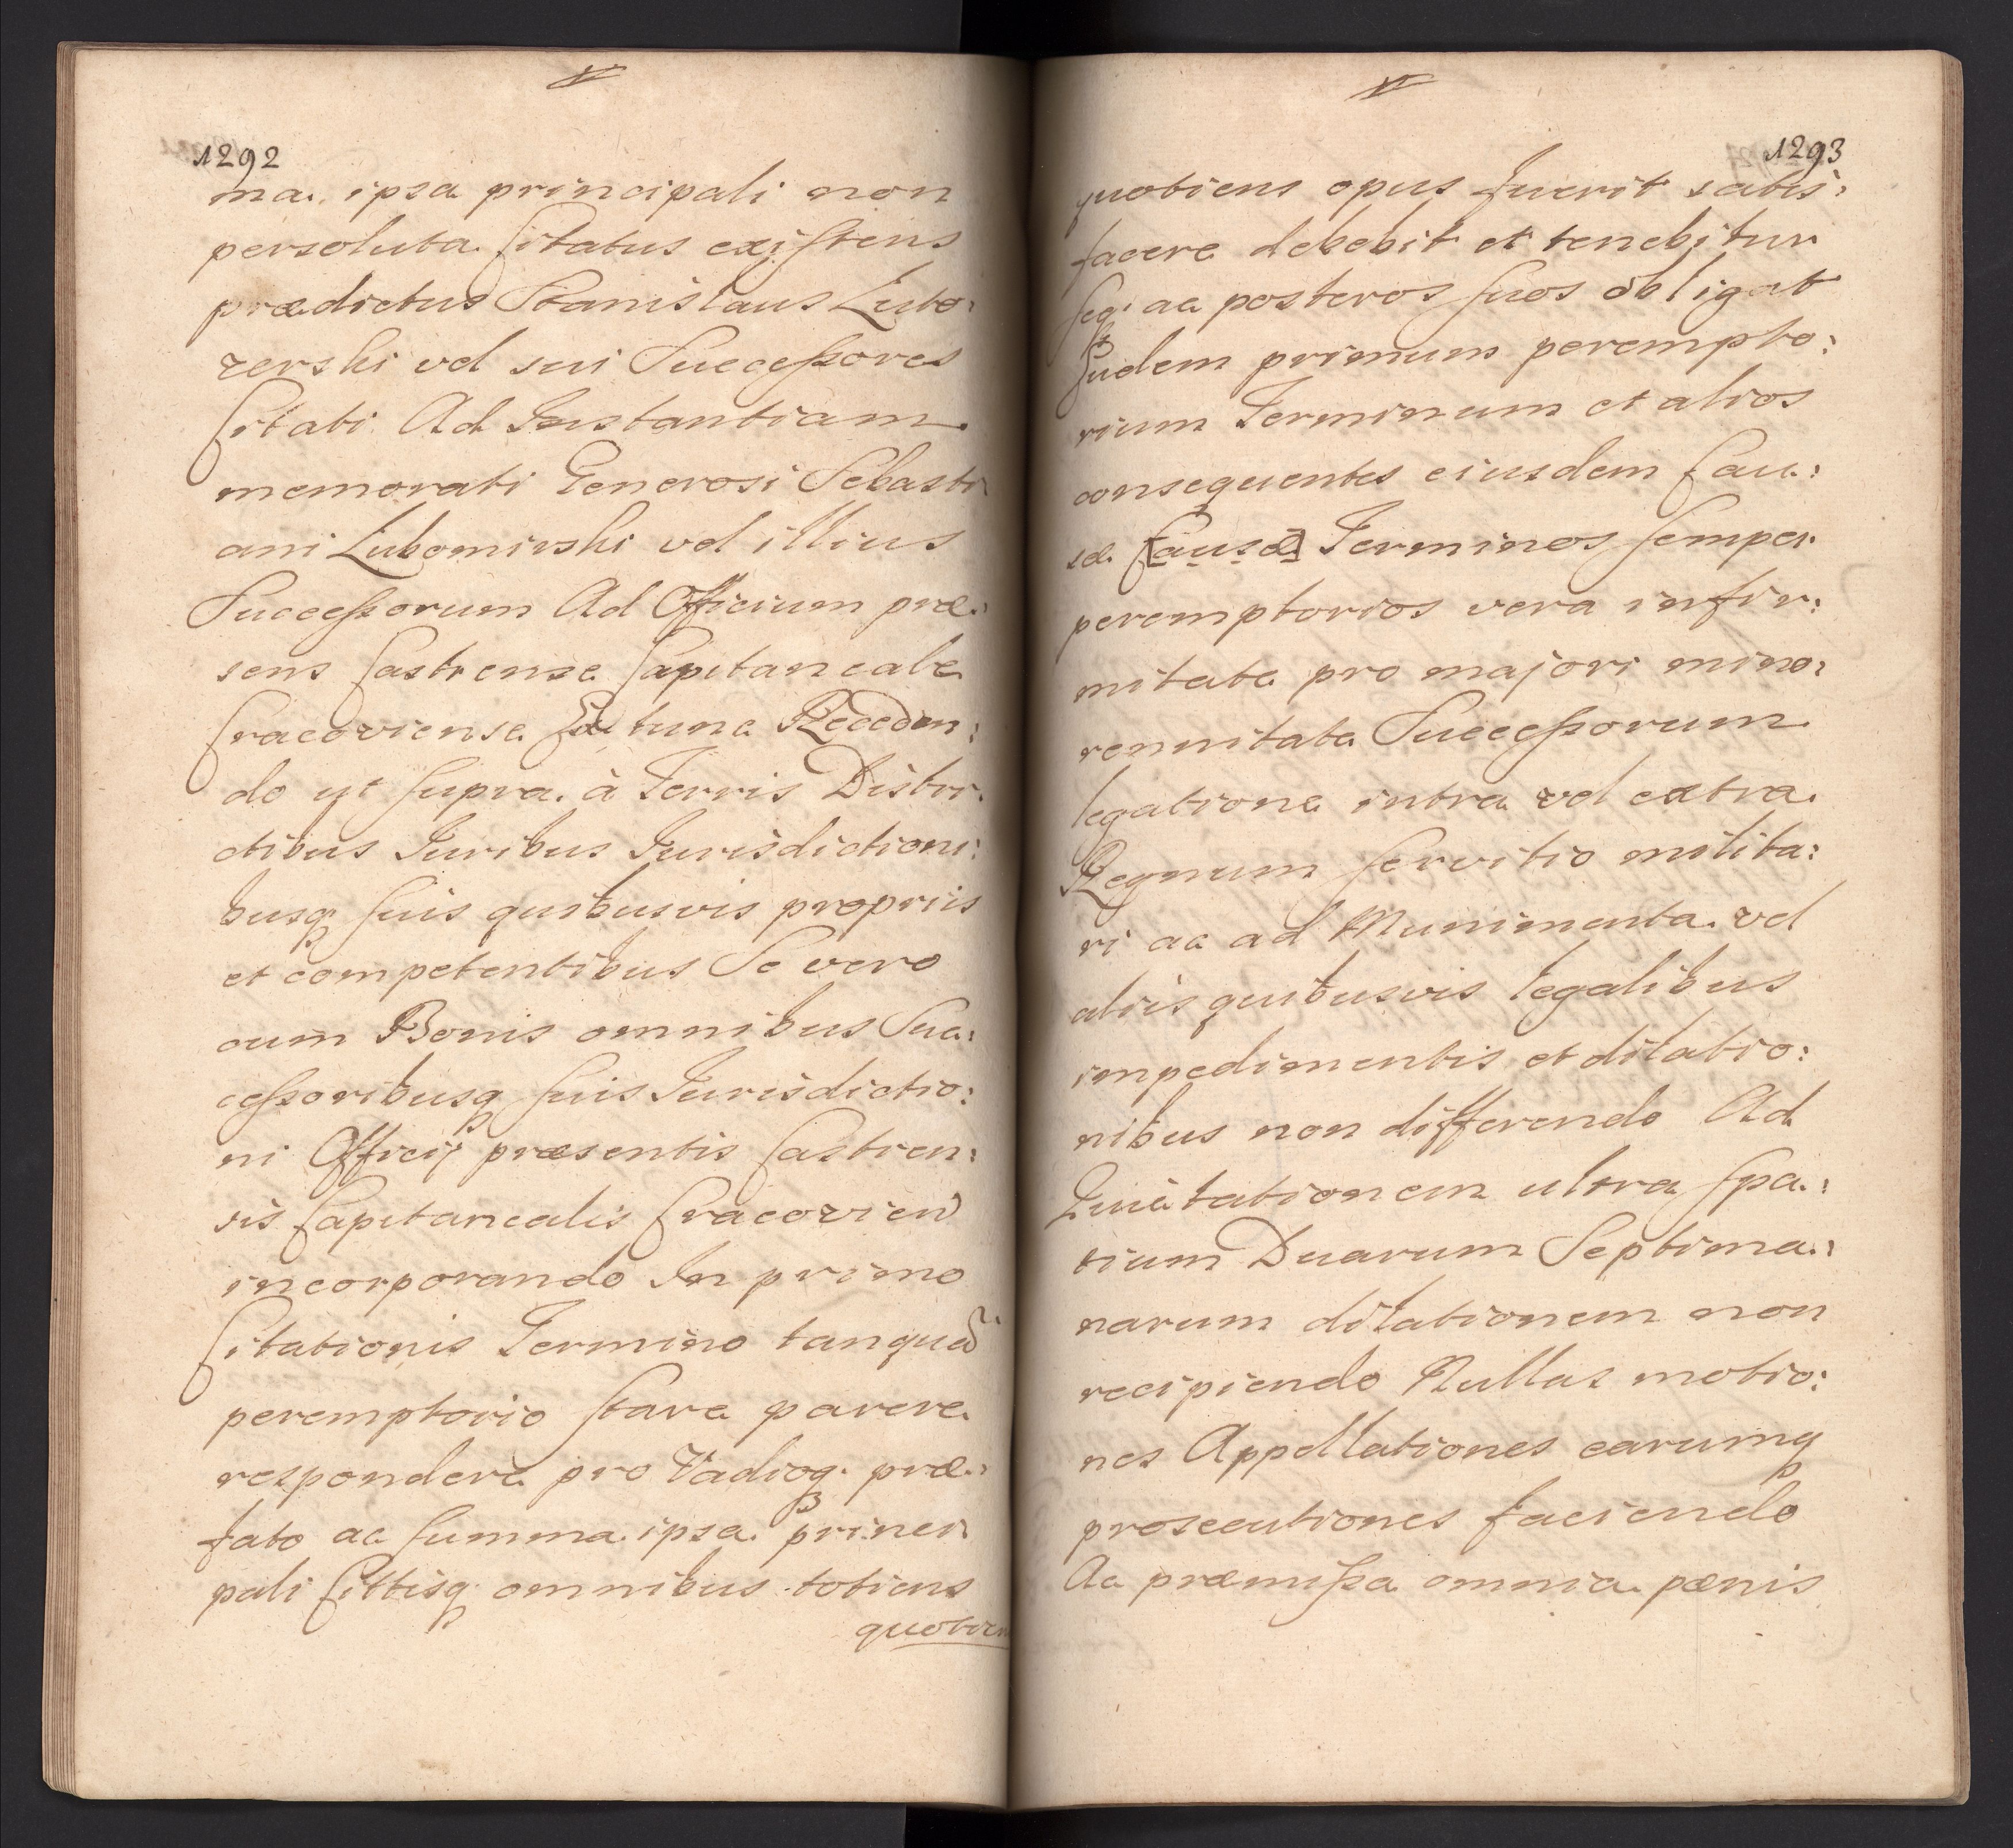 1292
ma ipsa principali non
persoluta Citatus existens
prædictus Stanislaus Lubo:
zerski vel sui Successores
Citati Ad Instantiam
memorati Generosi Sebasti
ani Lubomirski vel illius
Successorum Ad Officium præ:
sens Castrense Capitaneale
Cracoviense Ex tunc Receden:
do ut supra à Terris Distri:
ctibus Iuribus Iurisdictioni:
busq suis quibusvis propriis
et competentibus Se vero
cum Bonis omnibus Suc:
cessoribusq suis Iurisdictio:
ni Officij præsentis Castren:
sis Capitanealis Cracovien
incorporando In primo
Citationis Termino tanquã
peremptorio stare parere
respondere pro Vadioq præ:
fato ac summa ipsa princi
pali Cittisq omnibus totiens
quotien
1293
quotiens opus fuerit satis:
facere debebit et tenebitur
seq ac posteros suos obligat
Ibidem primum perempto:
rium Terminum et alios
consequentes eiusdem Cau:
sæ [Causæ] Terminos semper
peremptorios vera infir:
mitate pro majori mino:
rennitate Successorum
legatione intra vel extra
Regnum servitio milita:
ri ac ad Munimenta vel
aliis quibusvis legalibus
impedimentis et dilatio:
nibus non differendo Ad
Quietationem ultra spa:
tium Duarum Septima:
narum dilationem non
recipiendo Nullas motio:
nes Appellationes earumq
prosecutiones faciendo
Ac præmissa omnia pænis